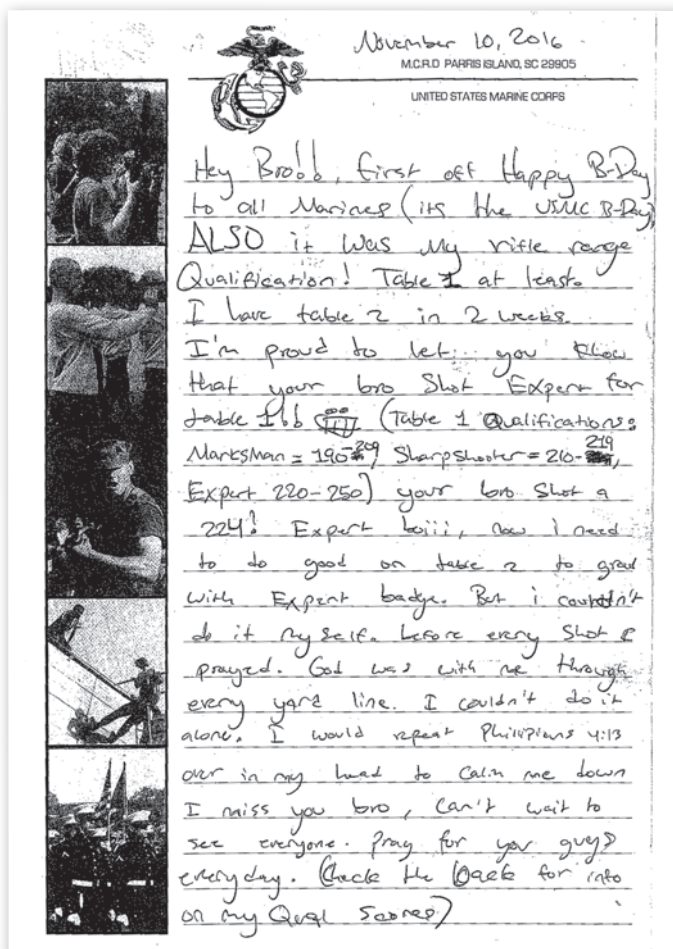 November 10, 2016
M.C.R.D PARRIS ISLAND, SC 29905
UNITED STATES MARINE CORPS
Hey Bro!!, first off Happy B-Day
to all Marines (its the USMC B-Day)
ALSO it was My rifle range
Qualification! Table 1 at least.
I have table 2 in 2 weeks.
I'm proud to let you know
that your bro Shot Expert for
table 1!! (Table 1 Qualifications:
MarksMan = 190-209, Sharpshooter = 210-219,
Expert 220-250) your bro Shot a
224! Expert boiii, now i need
to do good on table 2 to grad
with Expert badge. But i couldn't
do it myself. before every Shot I
prayed. God was with me through
every yard line. I couldn't do it
alone. I would repeat Philipians 4:13
over in my head to calm me down
I miss you bro, Can't wait to
see everyone. Pray for you guys
everyday. (Check the back for info
on my Qual Scores)